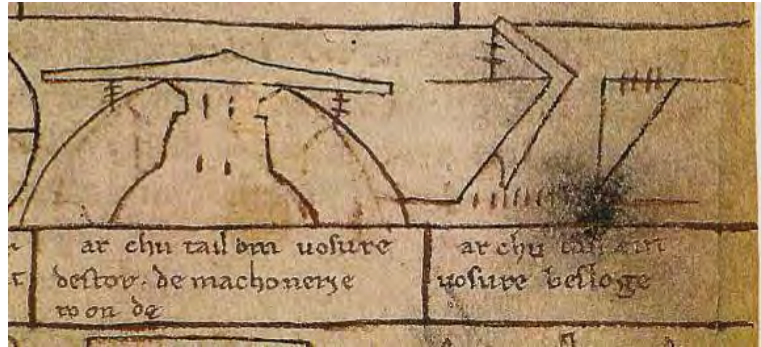 ar chu tail om vosure
destor. de machonerie
roon de
ar chu tail om
vosure besloge